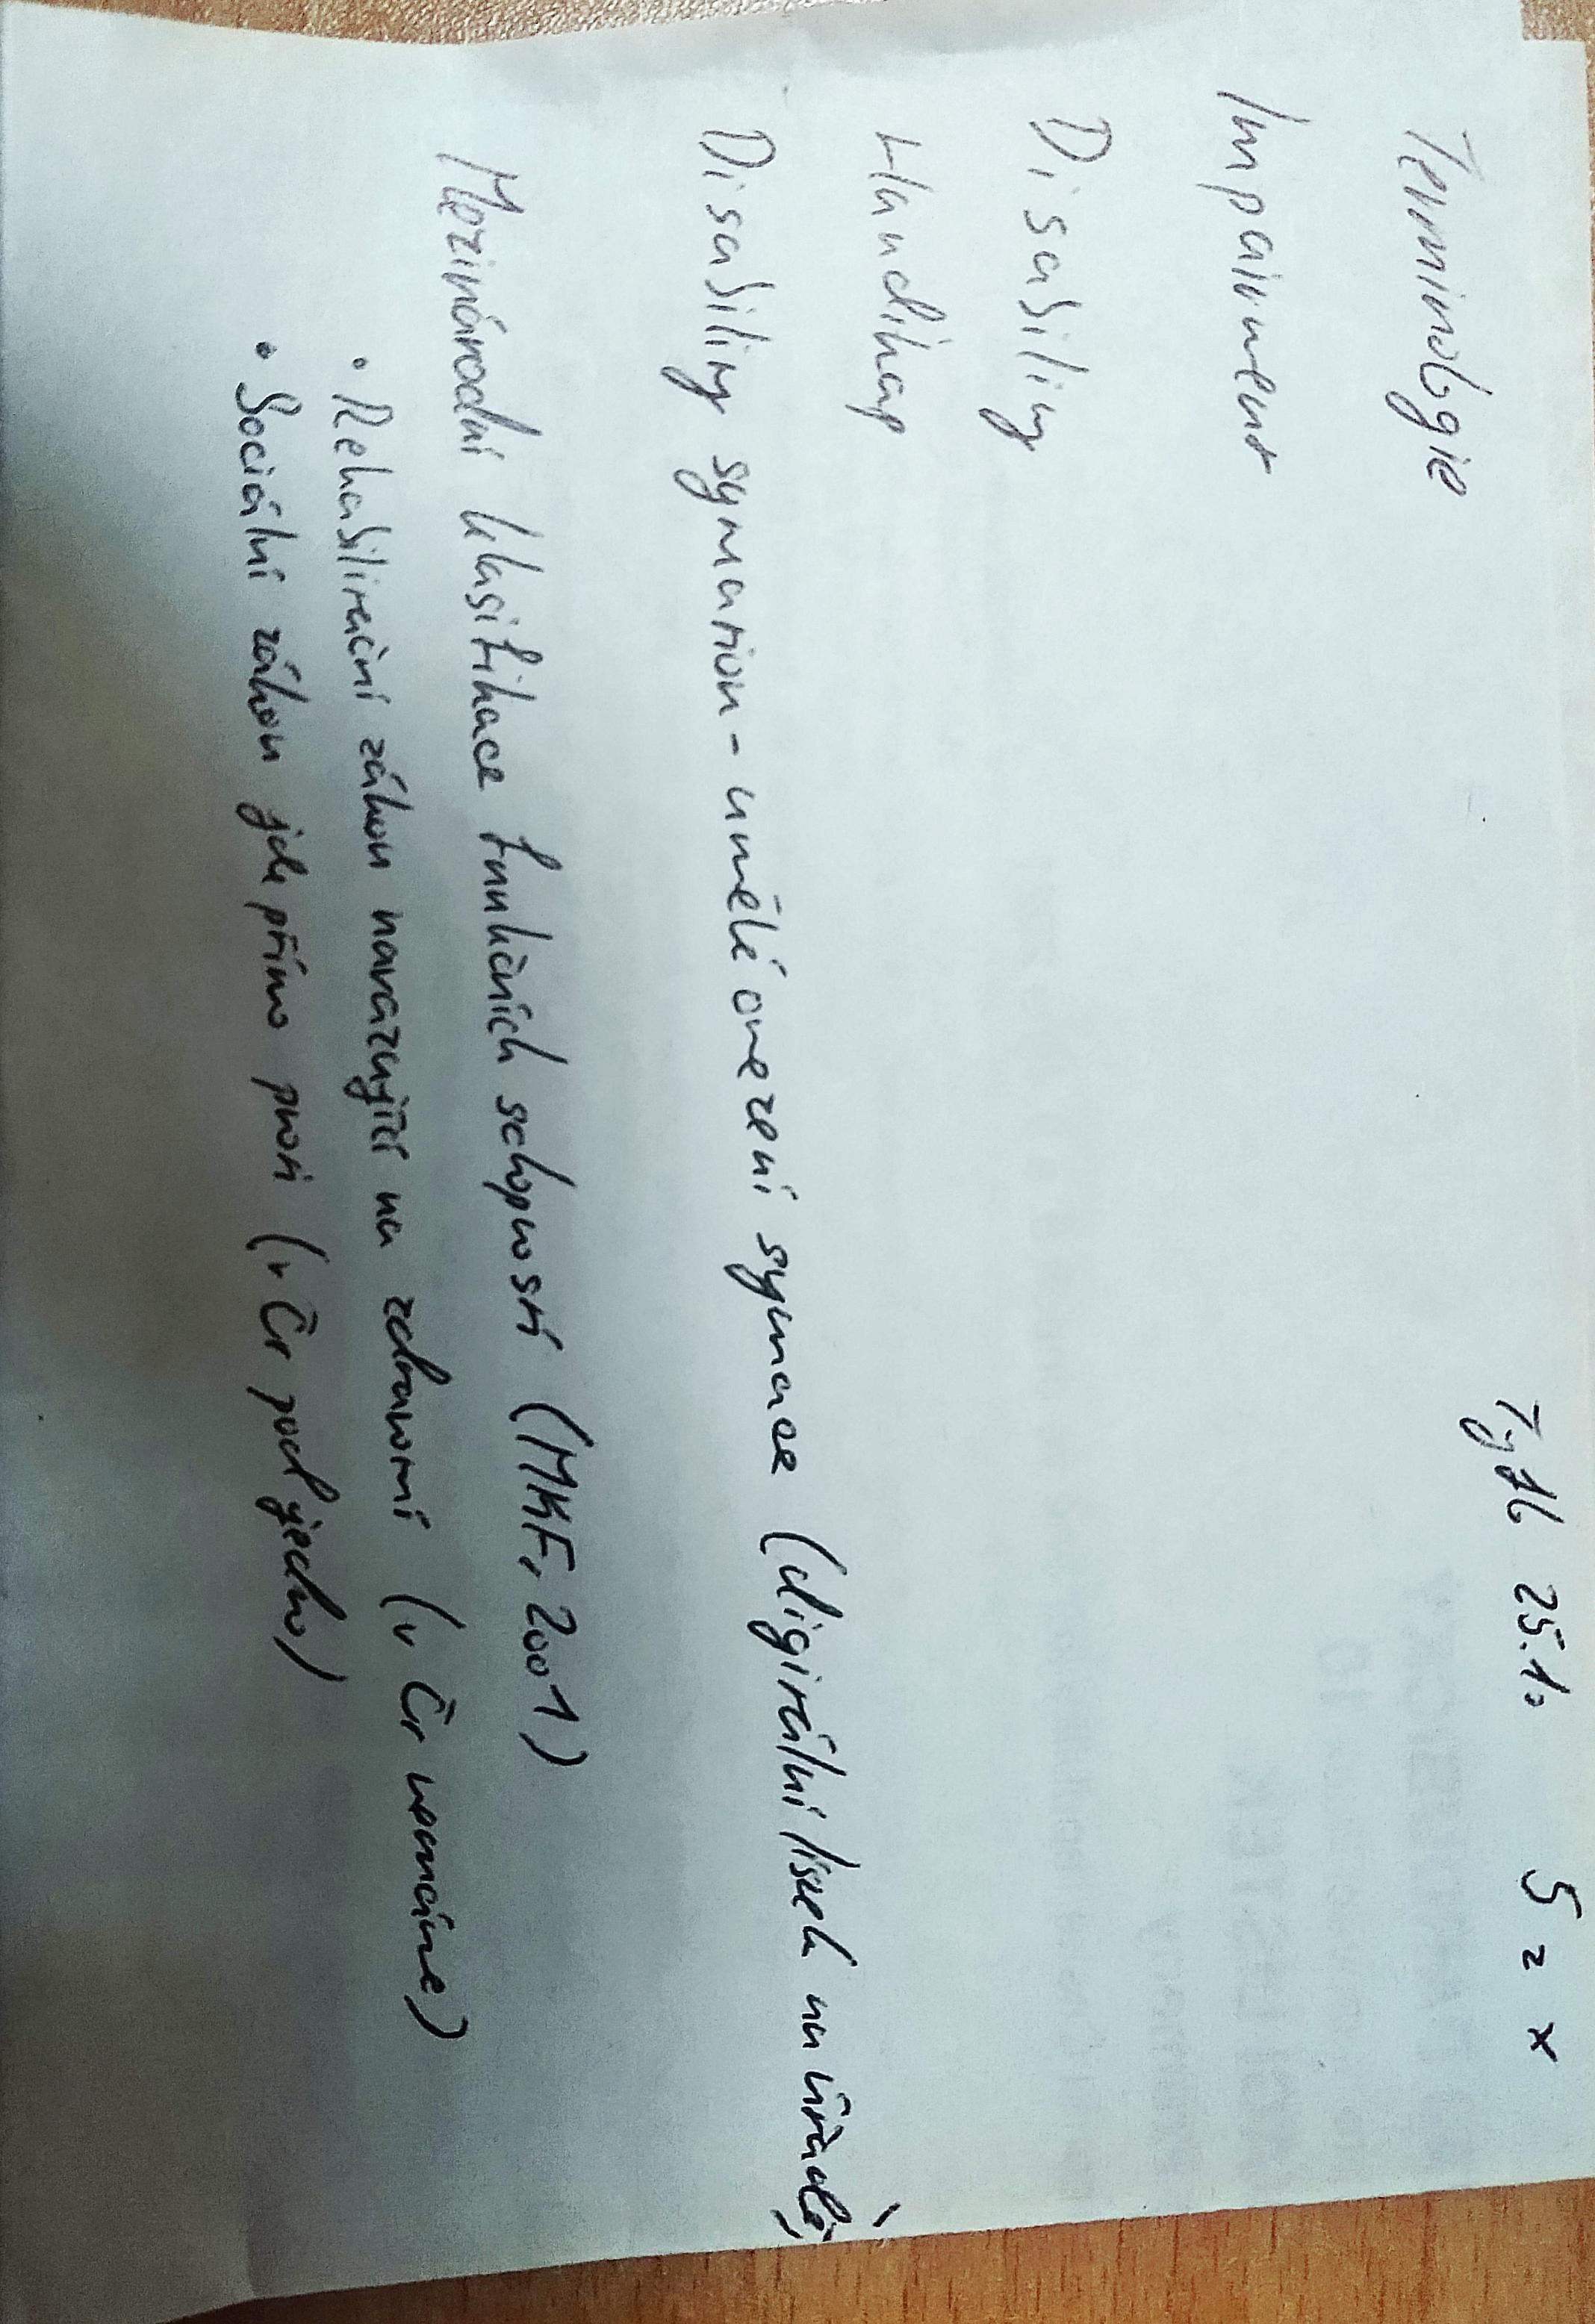 Tyfl 25.10 5 2 x
Terminologie
Impairment
Disability
Handikap
Disability symation - umělé omezení symace (digitální lísek na úřadě)
Mezinárodní klasifikace funkčních schopností (MKF, 2001)
• Rehabilitační zákon navazující na zdravotní (v Čr nemáme)
• Sociální zákon jde přímo proti (v Čr pod jedno)